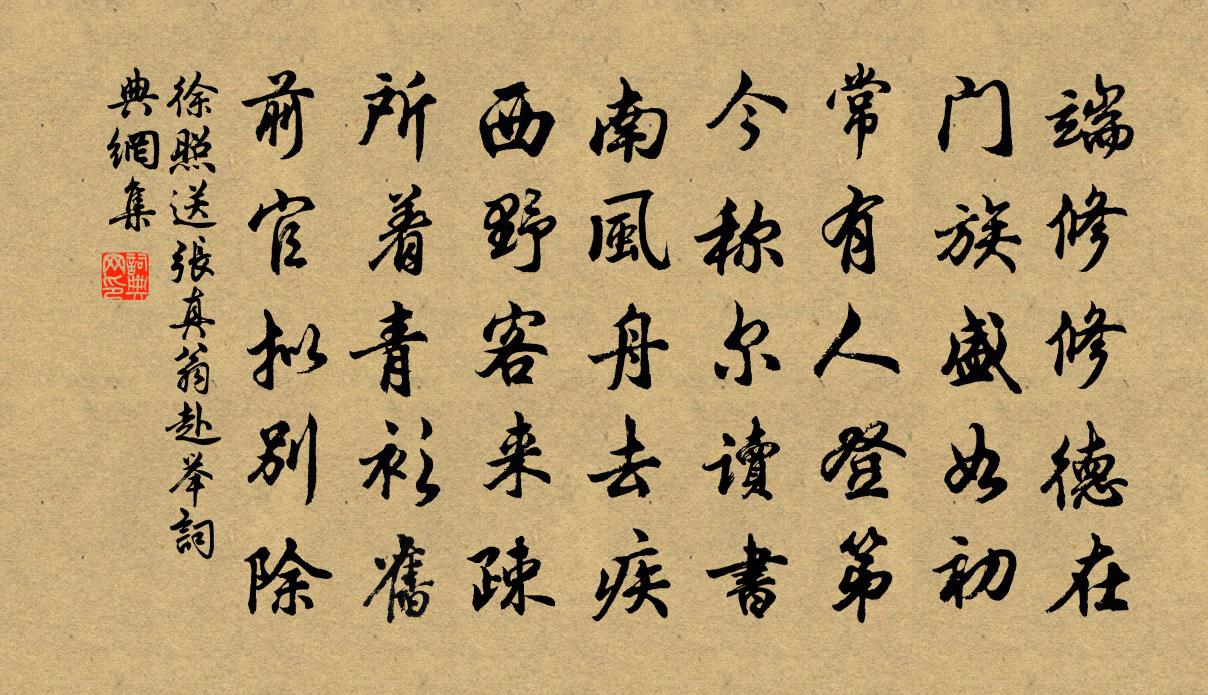 端修修德在
门族盛如初
常有人登第
今称尔读書
南風舟去疾
西野客来疎
所着青衫舊
前官拟别除
徐照送張真翁赴举詞
典網集
詞典网印